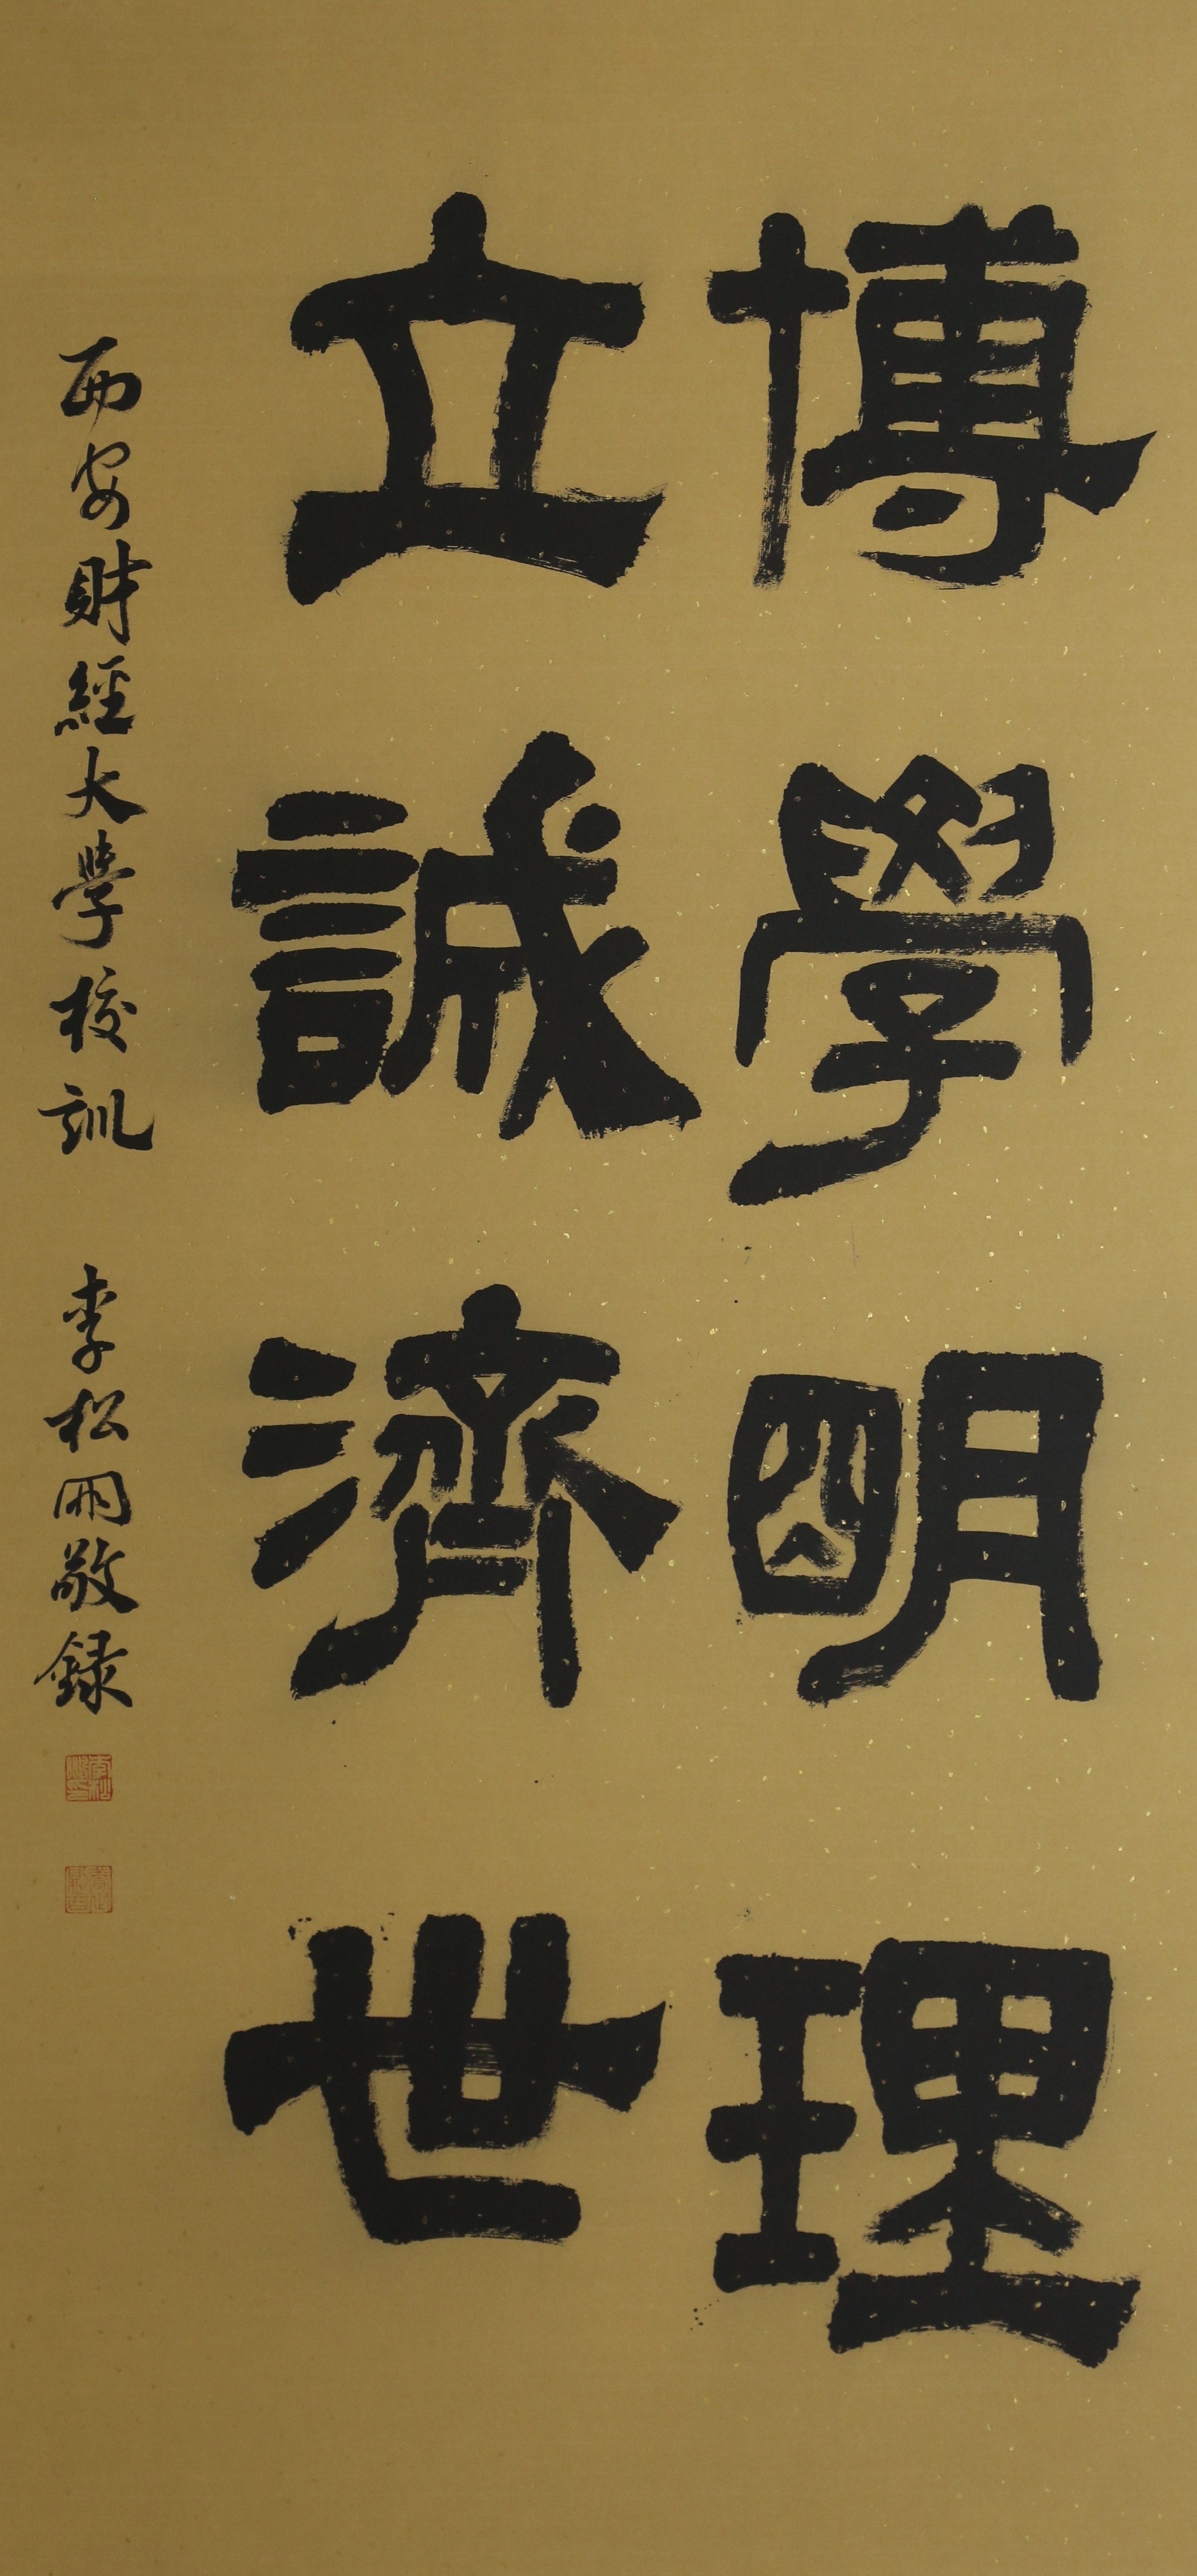 博學明理
立誠濟世
西安財經大學校訓 李松 敬録